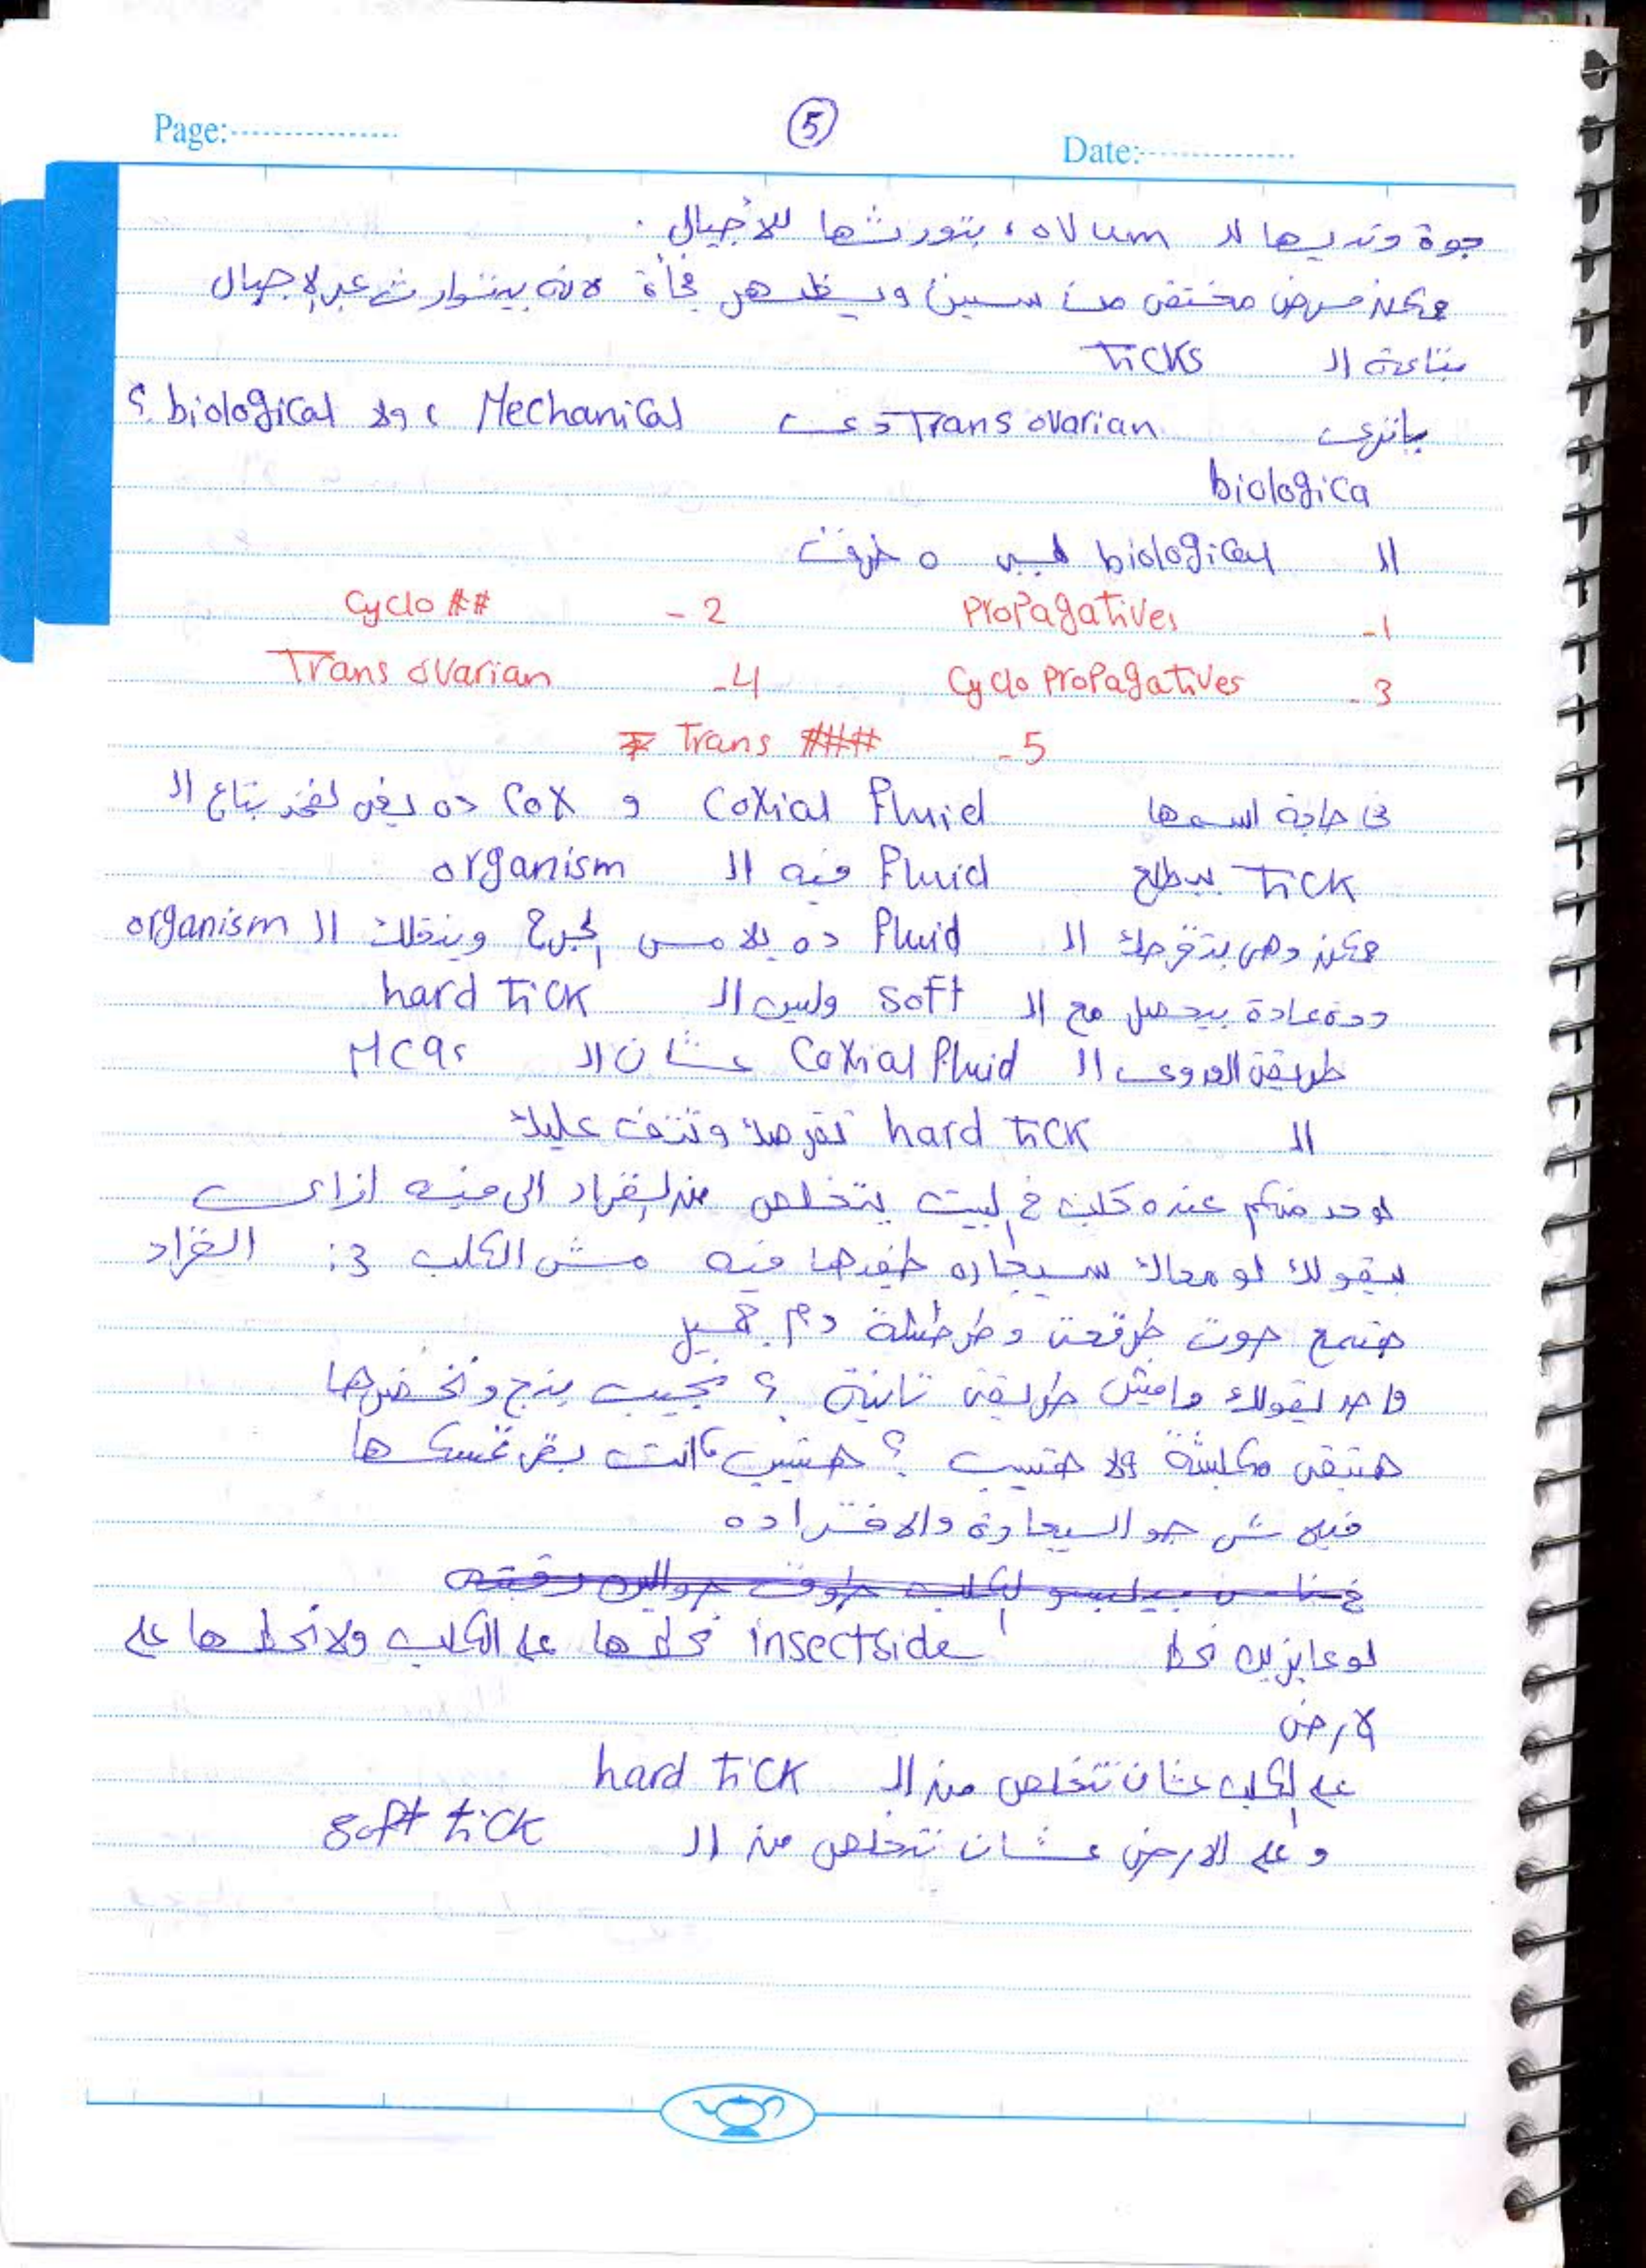 Page:
5
Date:
جوة وتديها للـ ovum، بتورثها للأجيال.
ممكن مرض مختفى من سنين ويظهر فجأة لانه بيتوارث عبر الاجيال
بتاعة الـ ticks
ياترى Trans ovarian دى Mechanical، ولا biological؟
biologica
الـ biological ليه ٥ طرق
1- Propagatives
2- Cyclo ##
3- Cyclo Propagatives
4- Trans ovarian
5- Trans ###
فى حاجة اسمها Coxial Fluid و Cox ده يعنى لفخد بتاع الـ
tick بيطلع Fluid فيه الـ organism
ممكن وهى بتقرصك الـ Fluid ده يلامس الجرح وينقلك الـ organism
وده عادة بيحصل مع الـ soft وليس الـ hard tick
طريقة العدوى الـ Coxial Fluid عشان الـ MCQs
الـ hard tick تقرصك وتتف عليك
لو حد منكم عنده كلب فى البيت يتخلص من القراد الى فيه ازاى
بيقولك لو معاك سيجاره طفيها فيه مش الكلب :3 القراد
هتسمع صوت طرقعة وطرطشة دم جميل
واحد يقولك مافيش طريقة تانية؟ نجيب بنج ونخضرها
هتبقى مكلبشة ولا هتسيب؟ هتسيب، انت بقى تمسكها
فيه شى جو السيجارة والافتراده
لو عايزين نحط insectside نحطها على الكلب ولا نحطها على
لارض
على الكلب عشان نتخلص من الـ hard tick
وعلى الارض عشان نتخلص من الـ soft tick